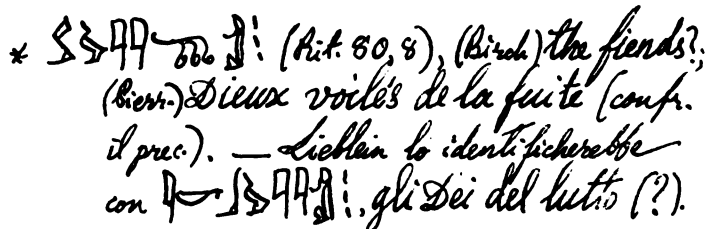 * (Rit. 80, 8), (Birch) the fiends?;
(Pierr.) Dieux voilés de la fuite (confr.
il prec.). — Lieblein lo identificherebbe
con , gli Dei del lutto (?).